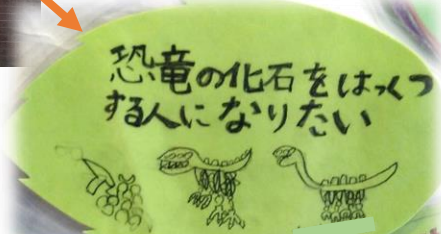 恐竜の化石をはっくつ
する人になりたい